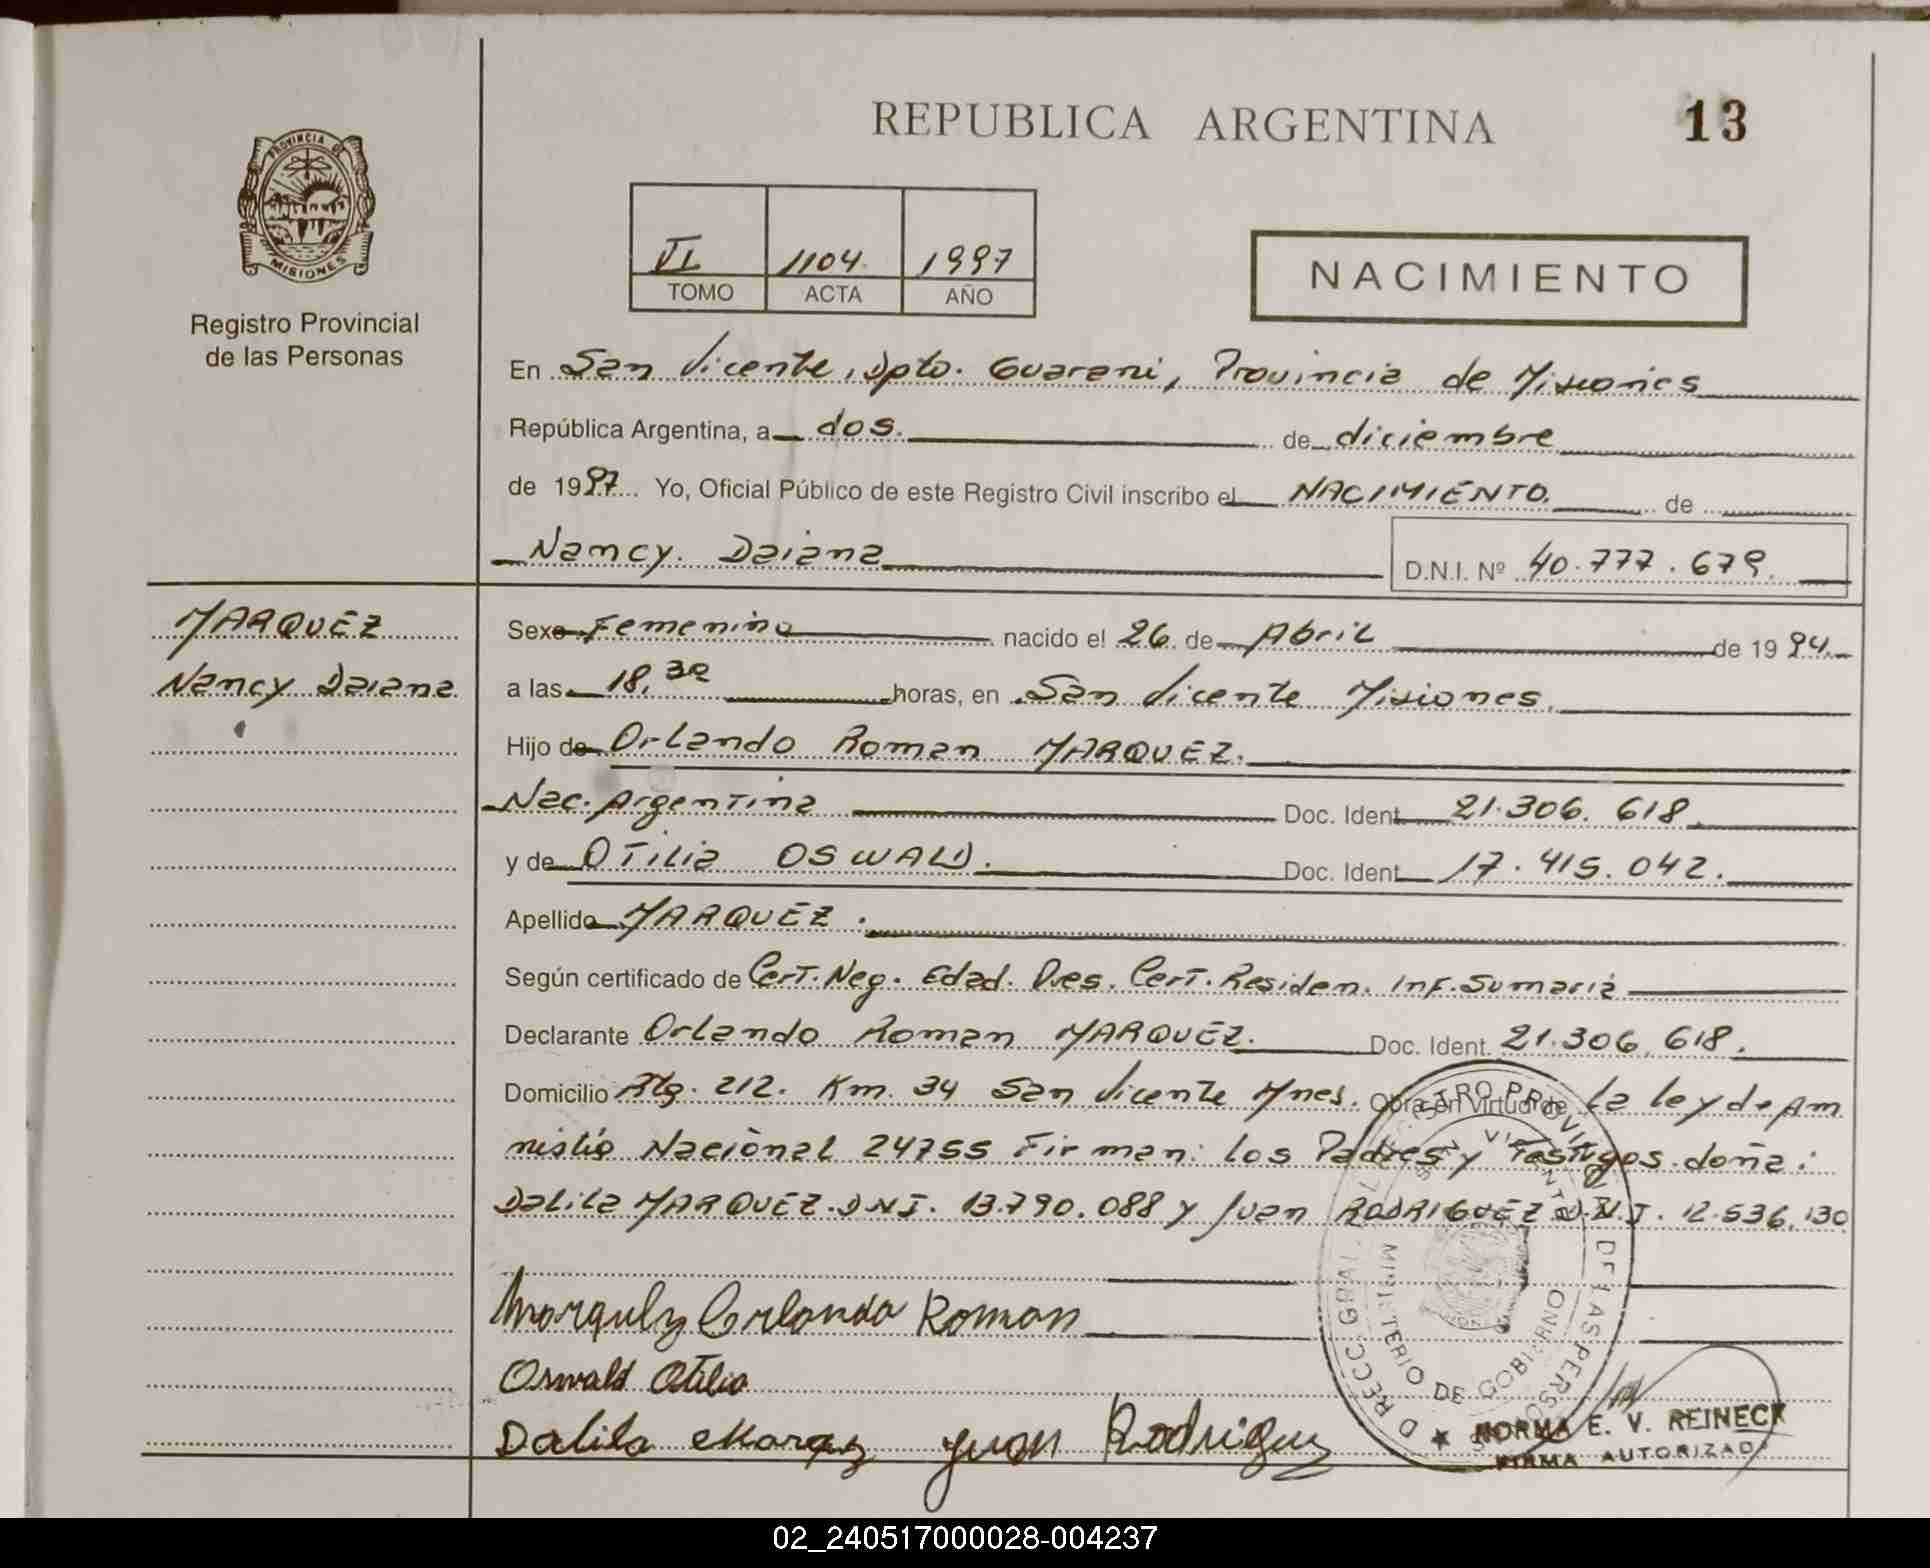 REPUBLICA ARGENTINA 13
PROVINCIA DE
MISIONES
Registro Provincial
de las Personas
VI 1104 1997
TOMO ACTA AÑO
NACIMIENTO
En San Vicente, Dpto. Guarani, Provincia de Misiones
República Argentina, a dos. de diciembre
de 1997 Yo, Oficial Público de este Registro Civil inscribo el NACIMIENTO. de
Nancy. Daiana D.N.I. Nº 40.777.679.
MARQUEZ
Nancy Daiana
Sexo Femenino nacido el 26 de Abril de 1994.
a las 18,30 horas, en San Vicente Misiones.
Hijo de Orlando Roman MARQUEZ.
Nac. Argentina Doc. Ident. 21.306.618.
y de OTilia OSWALD. Doc. Ident. 17.415.042.
Apellido MARQUEZ.
Según certificado de Cert. Neg. Edad. Pres. Cert. Residen. Inf. Sumaria
Declarante Orlando Roman MARQUEZ. Doc. Ident. 21.306.618.
Domicilio Rta. 212. Km. 34 San Vicente Mnes. Obra en virtud de La Ley de Am
nistia Nacional 24755 Firman: los Padres y Testigos. doña:
Dalila MARQUEZ. D.N.I. 13.790.088 y Juan RODRIGUEZ D.N.I. 12.536.130
Marquez Orlando Roman
Oswald Otilia
Dalila Marquez Juan Rodriguez
DIRECC. GRAL. DEL REGISTRO PROVINCIAL DE LAS PERSONAS
SAN VICENTE
MINISTERIO DE GOBIERNO
NORMA E. V. REINECK
FIRMA AUTORIZADA
02_240517000028-004237